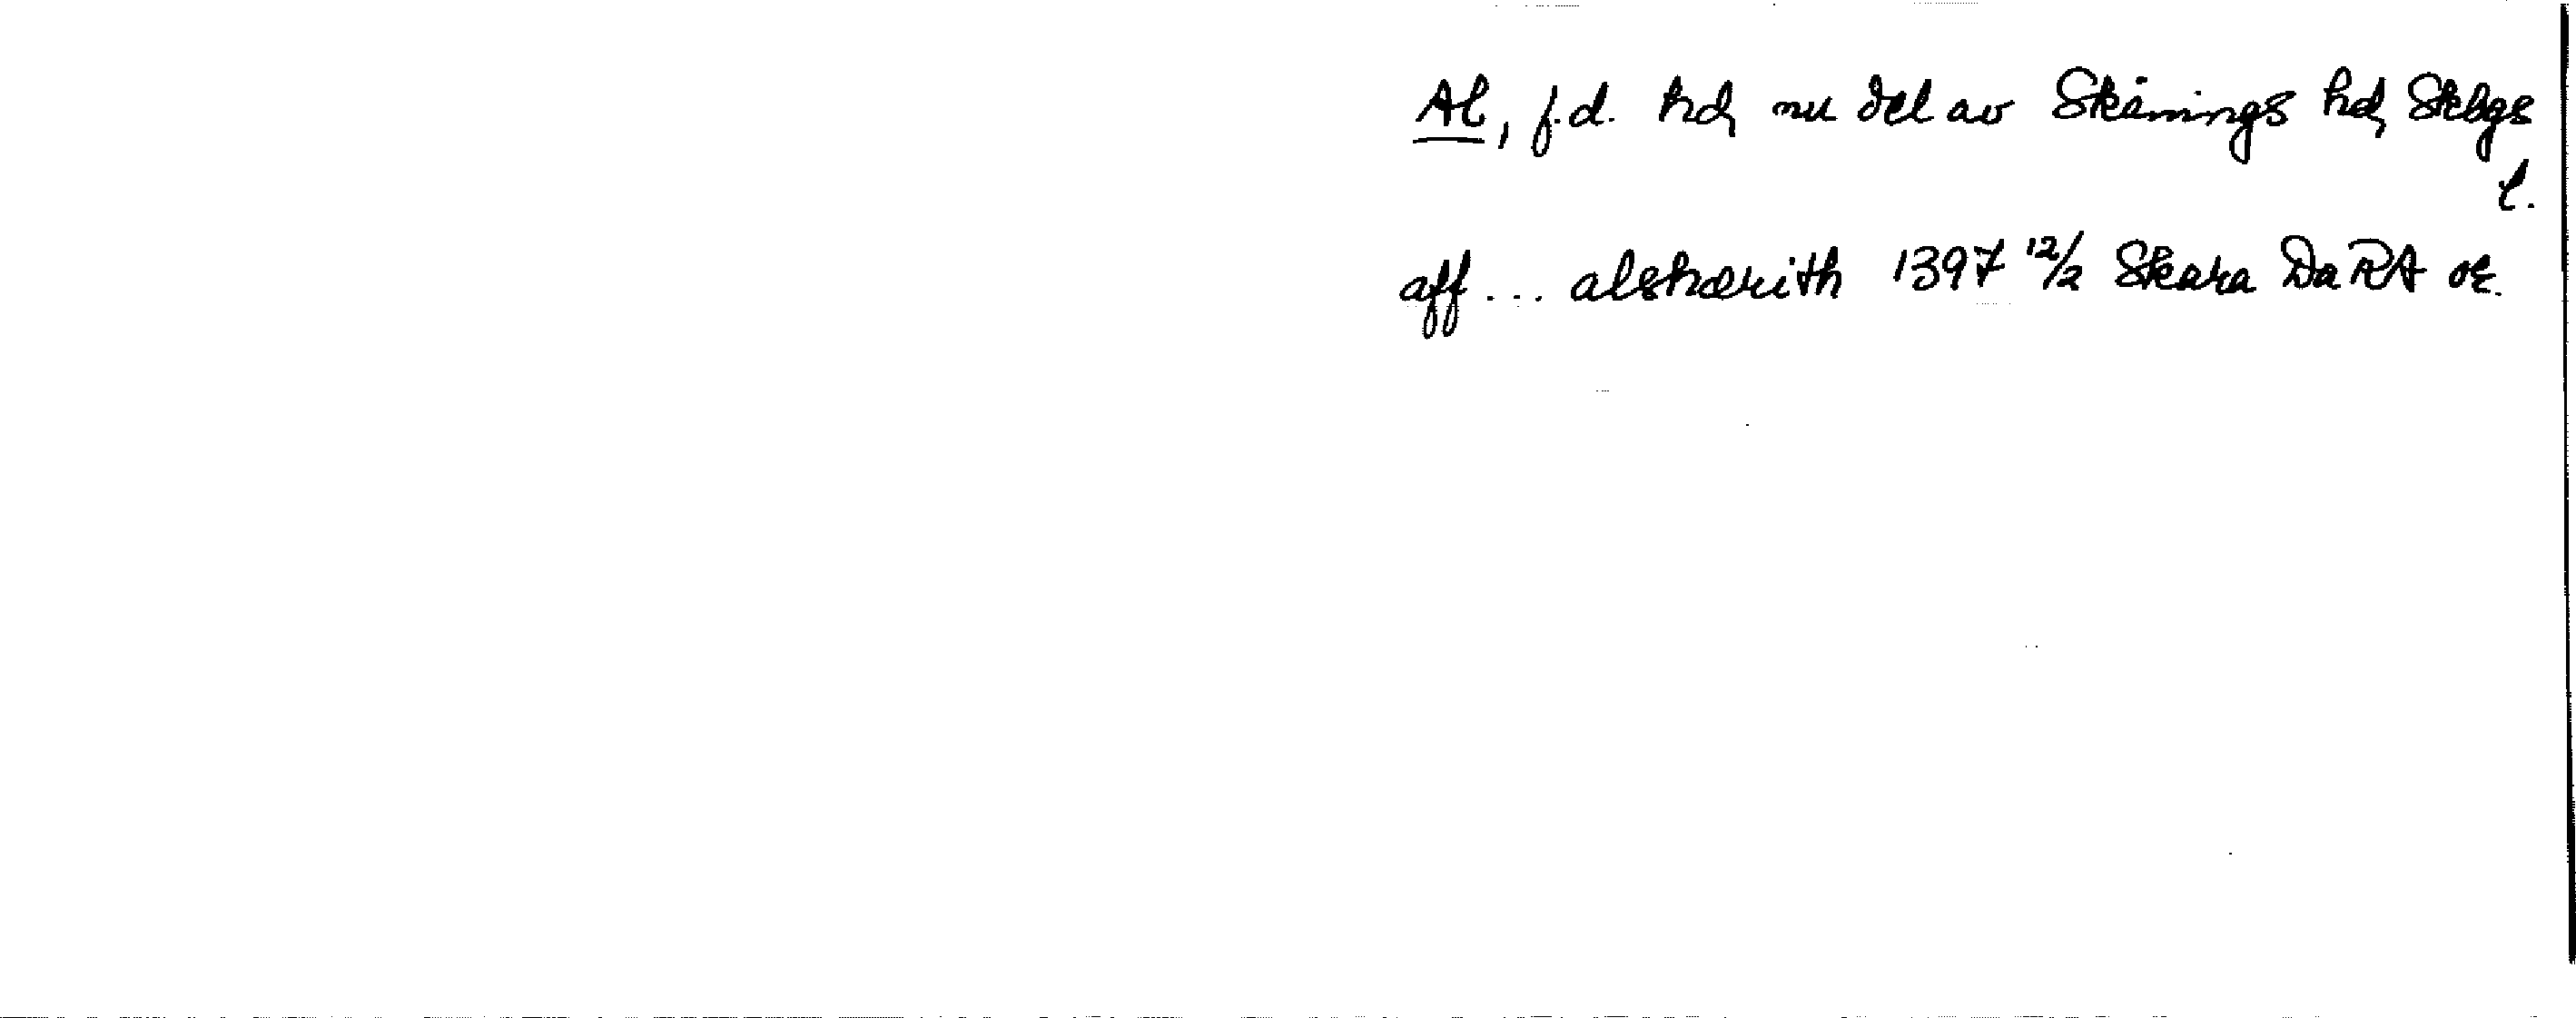 Al, f.d. hd, nu del av Skånings hd, Skbgs
l.
aff ... alshærith 1397 12/2 Skara DaRA or.